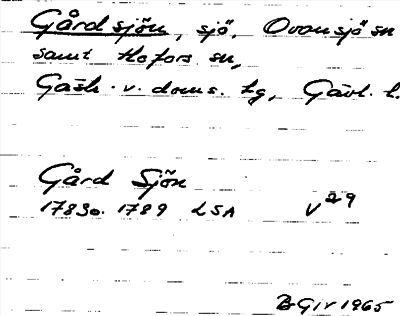 Gårdsjön, sjö, Ovansjö sn
samt Hofors sn,
Gästr. v. doms. hg, Gävl. l.
Gård Sjön
1783o. 1789 LSA V29
BGir 1965